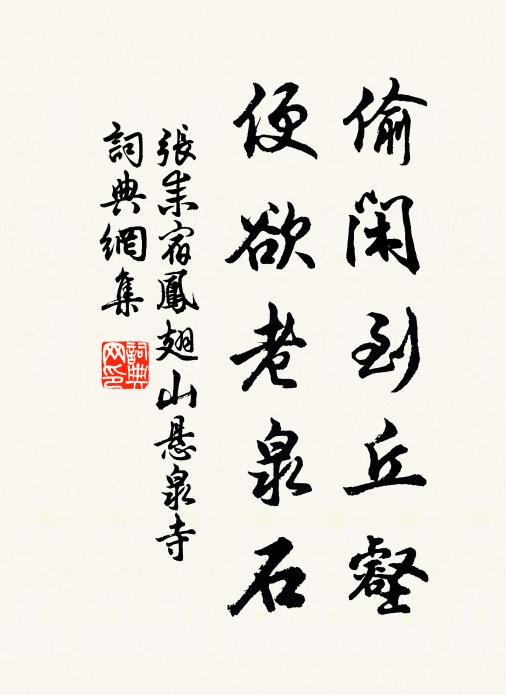 偷閑到丘壑
便欲老泉石
張耒宿鳳翅山懸泉寺
詞典網集
詞典
网印